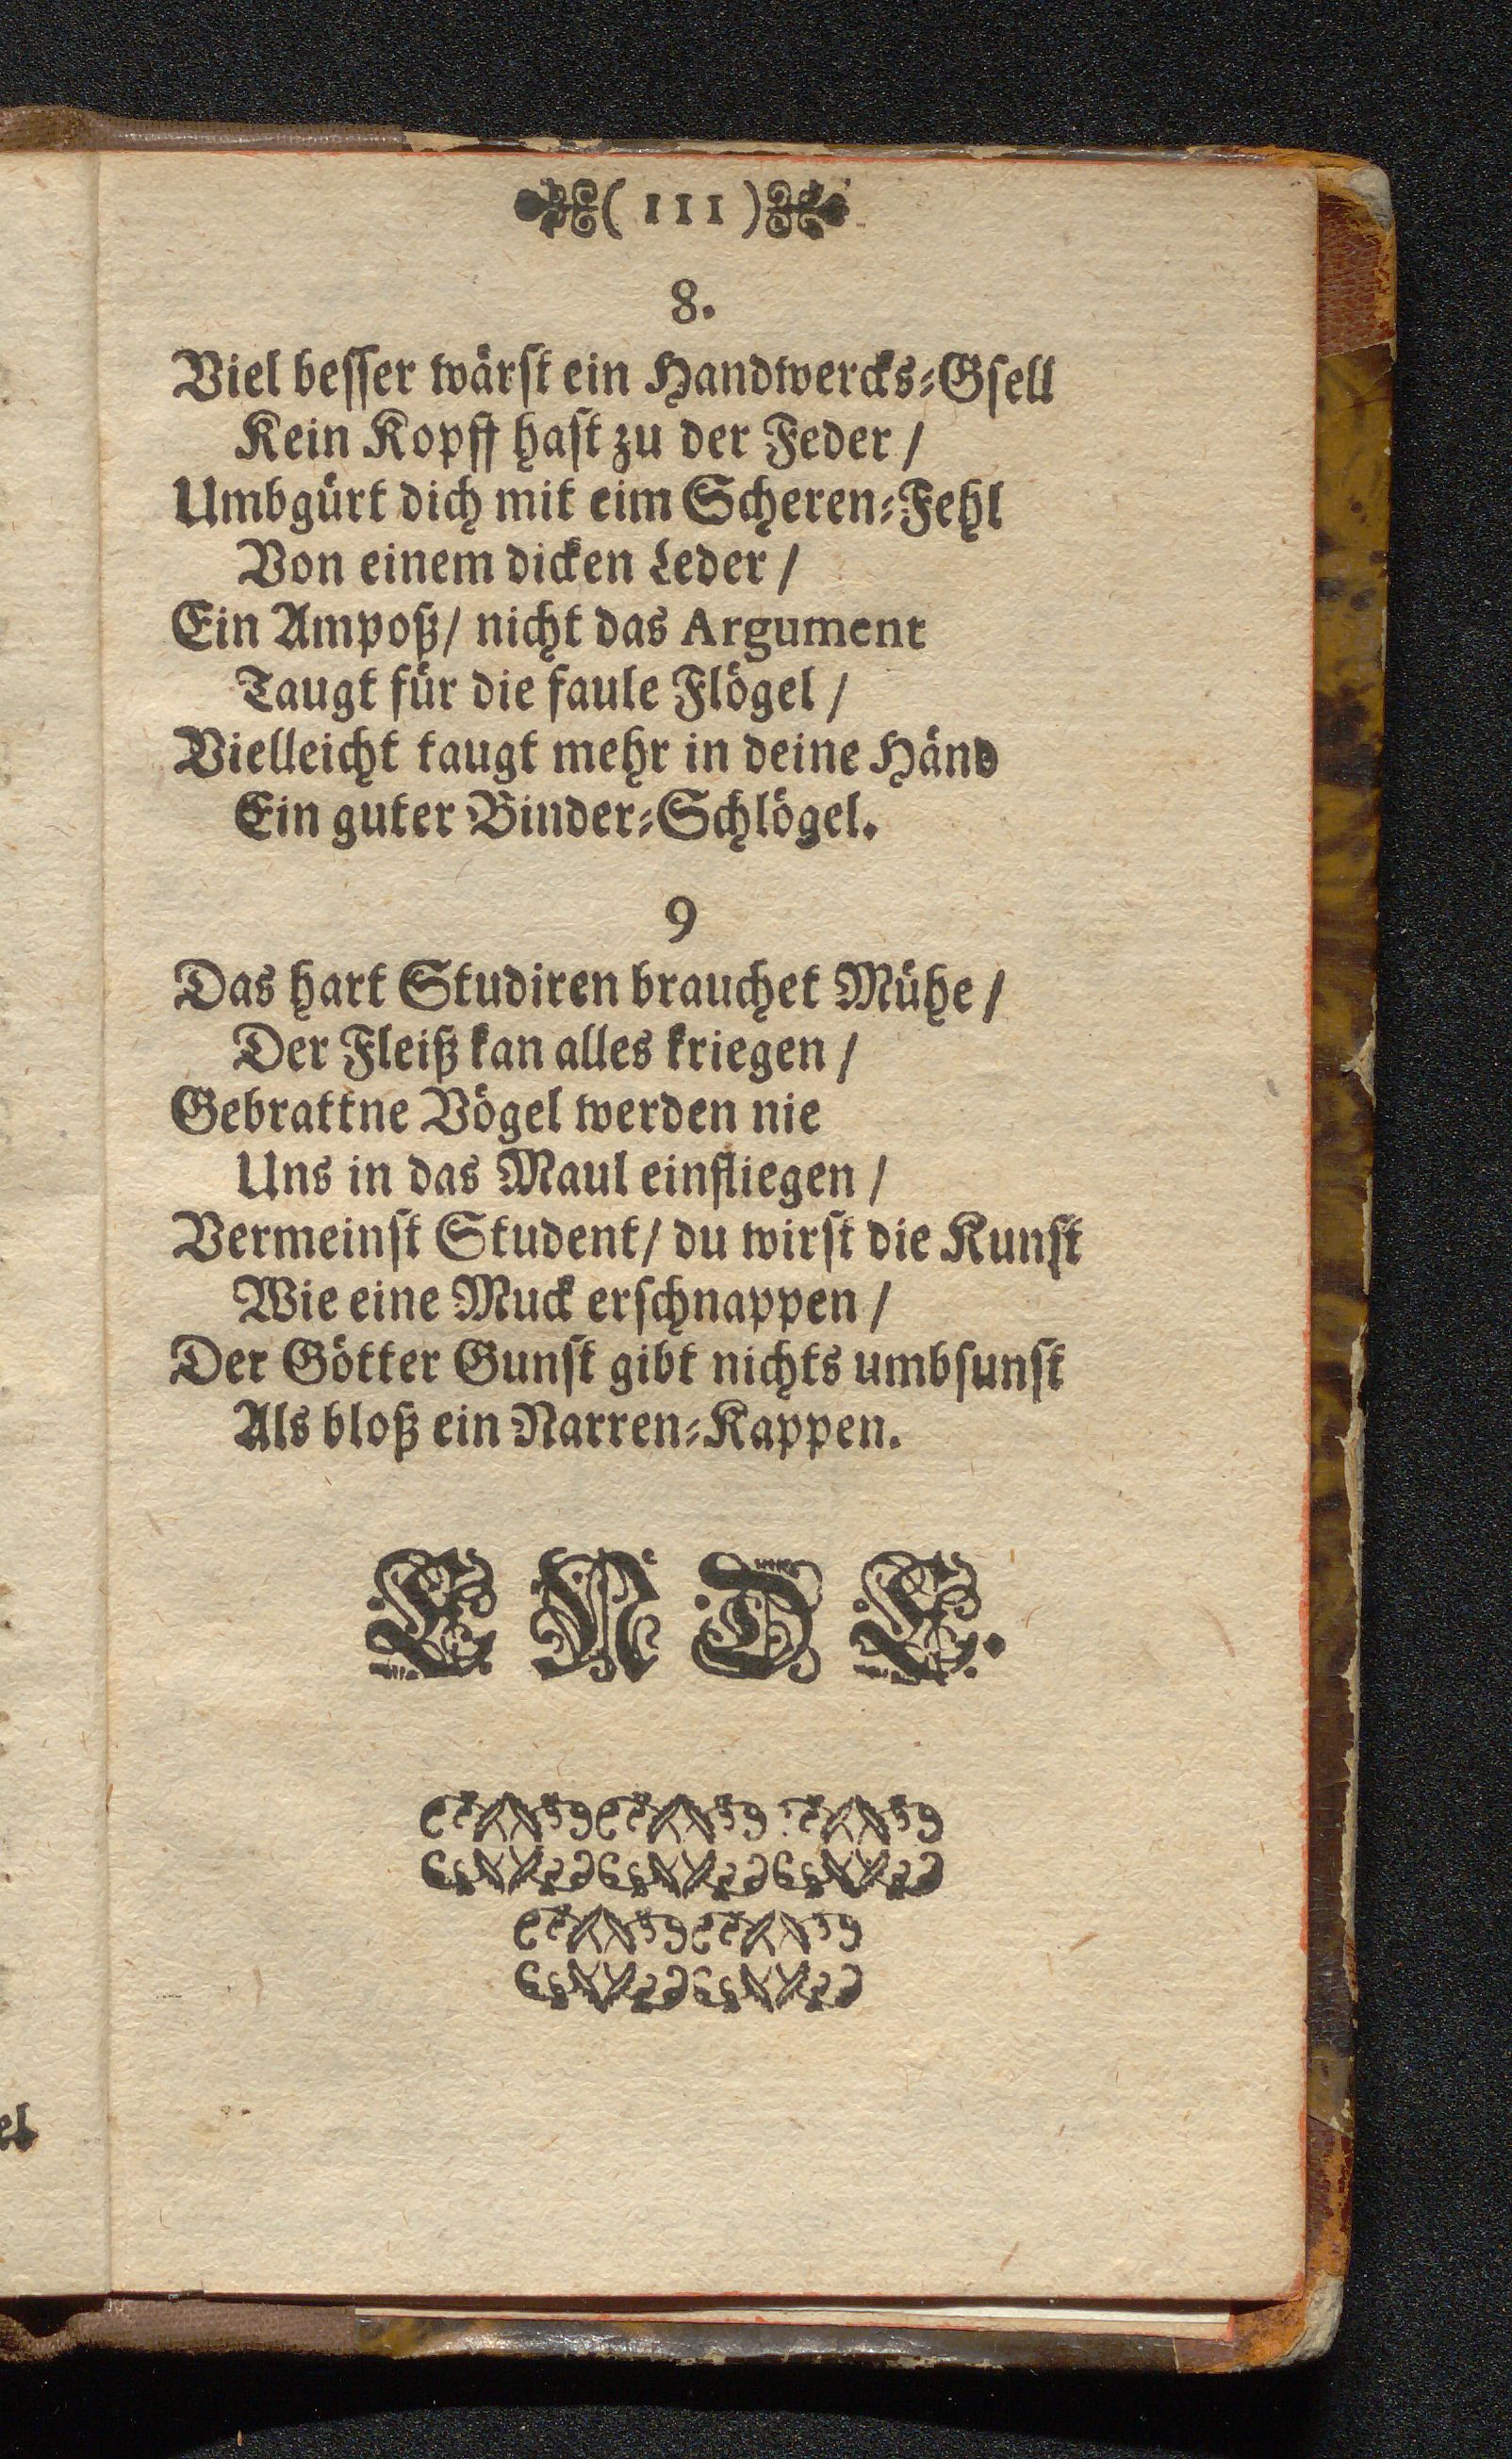 ( 111 )
8.
Viel besser wärst ein Handwercks-Gsell
Kein Kopff hast zu der Feder /
Umbgürt dich mit eim Scheren-Fehl
Von einem dicken Leder /
Ein Ampoß / nicht das Argument
Taugt für die faule Flögel /
Vielleicht taugt mehr in deine Händ
Ein guter Binder-Schlögel.
9
Das hart Studiren brauchet Mühe /
Der Fleiß kan alles kriegen /
Gebrattne Vögel werden nie
Uns in das Maul einfliegen /
Vermeinst Student / du wirst die Kunst
Wie eine Muck erschnappen /
Der Götter Gunst gibt nichts umbsunst
Als bloß ein Narren-Kappen.
ENDE.